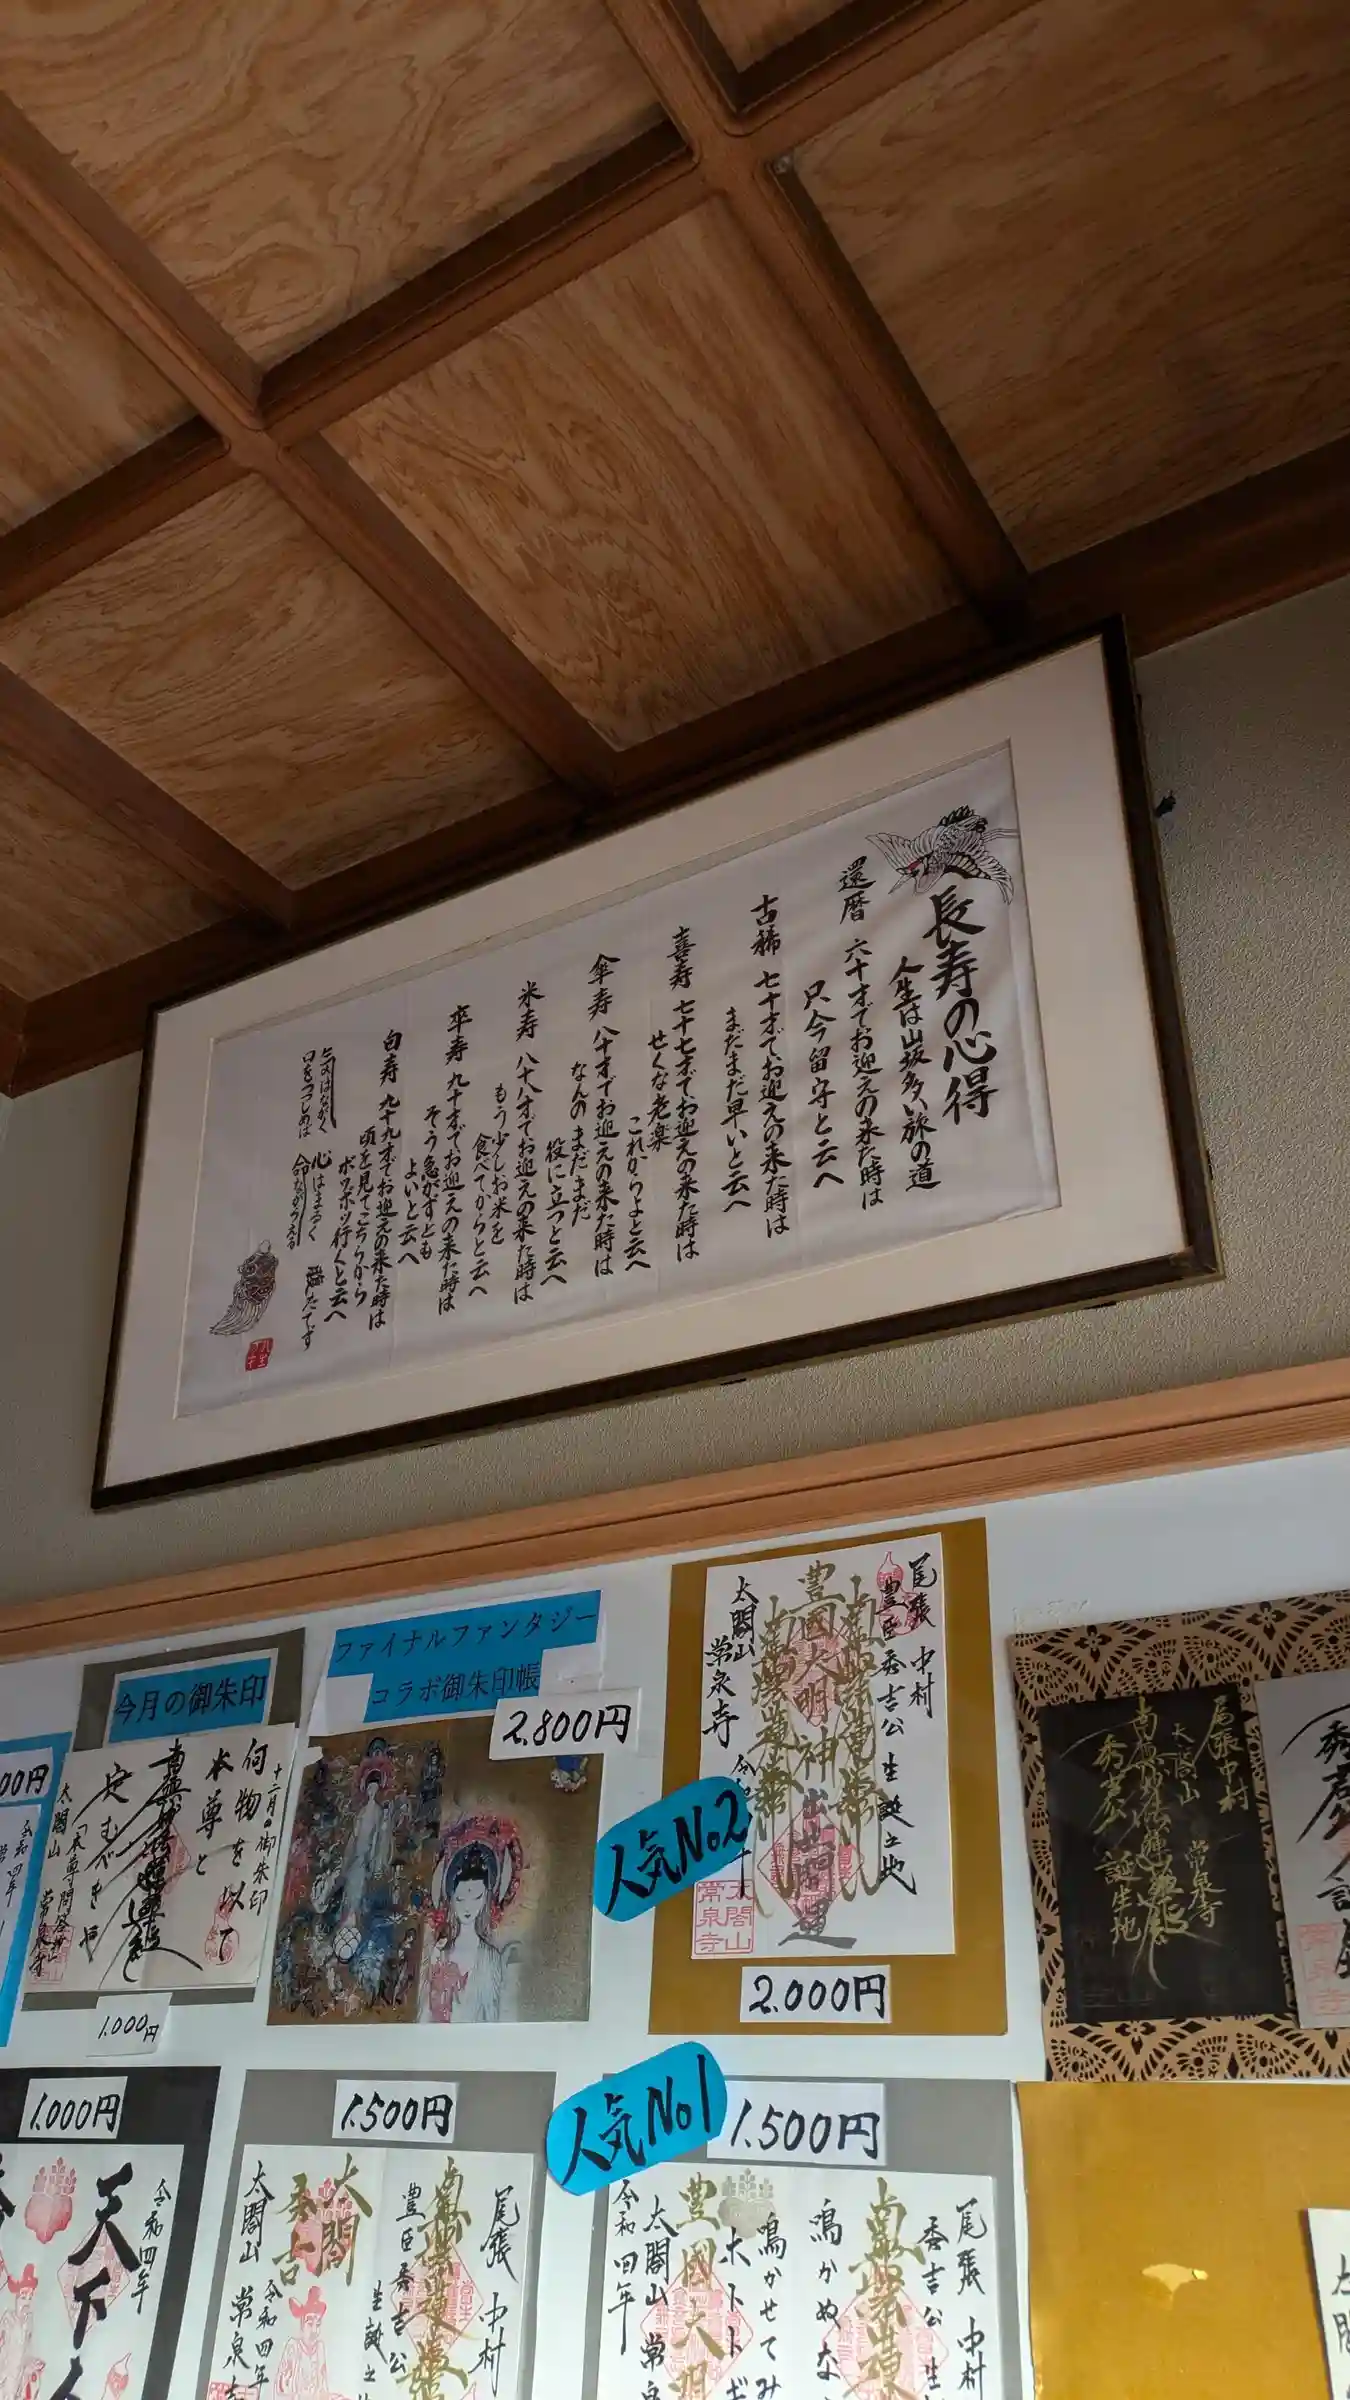 長寿の心得
人生は山坂多い旅の道
還暦 六十才でお迎えの来た時は
只今留守と云へ
古稀 七十才でお迎えの来た時は
まだまだ早いと云へ
喜寿 七十七才でお迎えの来た時は
せくな老楽
これからよと云へ
傘寿 八十才でお迎えの来た時は
なんのまだまだ
役に立つと云へ
米寿 八十八才でお迎えの来た時は
もう少しお米を
食べてからと云へ
卒寿 九十才でお迎えの来た時は
そう急がずとも
よいと云へ
白寿 九十九才でお迎えの来た時は
頃を見てこちらから
ボツボツ行くと云へ
気はながく 心はまるく 腹たてず
口をつつしめば 命ながらえる
今月の御朱印
十二月の御朱印
何物を以て
本尊と
定むべきや
太閤山 常泉寺
1.000円
ファイナルファンタジー
コラボ御朱印帳
2.800円
尾張 中村
豊臣秀吉公 生誕之地
南無妙法蓮華経
豊國大明神
太閤山 常泉寺
人気No2
2.000円
尾張中村
太閤山 常泉寺
南無妙法蓮華経
秀吉公 誕生地
00円
1.000円
令和四年
天下
1.500円
尾張 中村
豊臣秀吉公
太閤
秀吉
令和四年
太閤山
人気No1
1.500円
尾張 中村
秀吉公 生
鳴かぬな
鳴かせてみ
ホトトギ
豊國大明
太閤山 常泉
令和四年